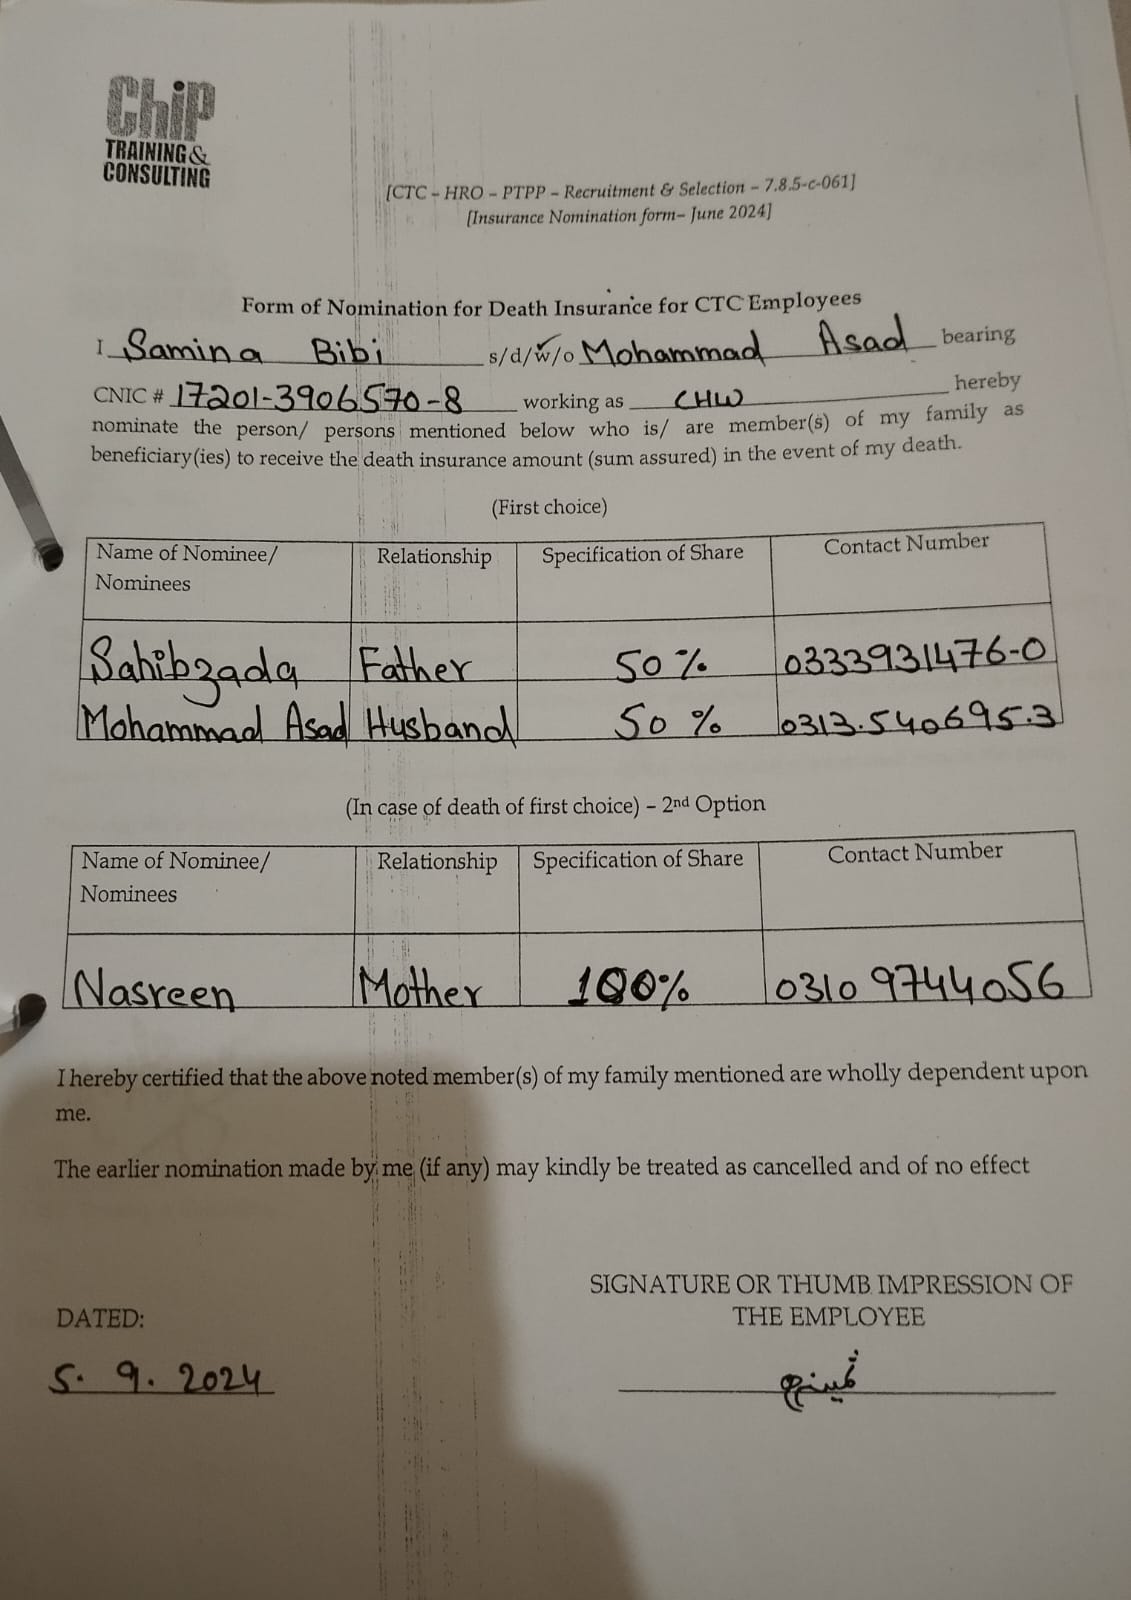 Chip
TRAINING &
CONSULTING
[CTC – HRO – PTPP – Recruitment & Selection – 7.8.5-c-061]
[Insurance Nomination form– June 2024]
Form of Nomination for Death Insurance for CTC Employees
I Samina Bibi s/d/w/o Mohammad Asad bearing
CNIC # 17201-3906570-8 working as CHW hereby
nominate the person/ persons mentioned below who is/ are member(s) of my family as
beneficiary(ies) to receive the death insurance amount (sum assured) in the event of my death.
(First choice)
Name of Nominee/ Nominees Relationship Specification of Share Contact Number
Sahibzada Father 50 % 0333931476-0
Mohammad Asad Husband 50 % 0313.540695.3
(In case of death of first choice) – 2nd Option
Name of Nominee/ Nominees Relationship Specification of Share Contact Number
Nasreen Mother 100% 0310 9744056
I hereby certified that the above noted member(s) of my family mentioned are wholly dependent upon
me.
The earlier nomination made by me (if any) may kindly be treated as cancelled and of no effect
SIGNATURE OR THUMB IMPRESSION OF
THE EMPLOYEE
DATED:
5. 9. 2024
ثمینہ